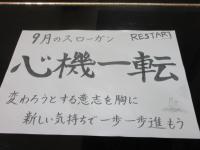 9月のスローガン RESTART
心機一転
変わろうとする意志を胸に
新しい気持ちで一歩一歩進もう